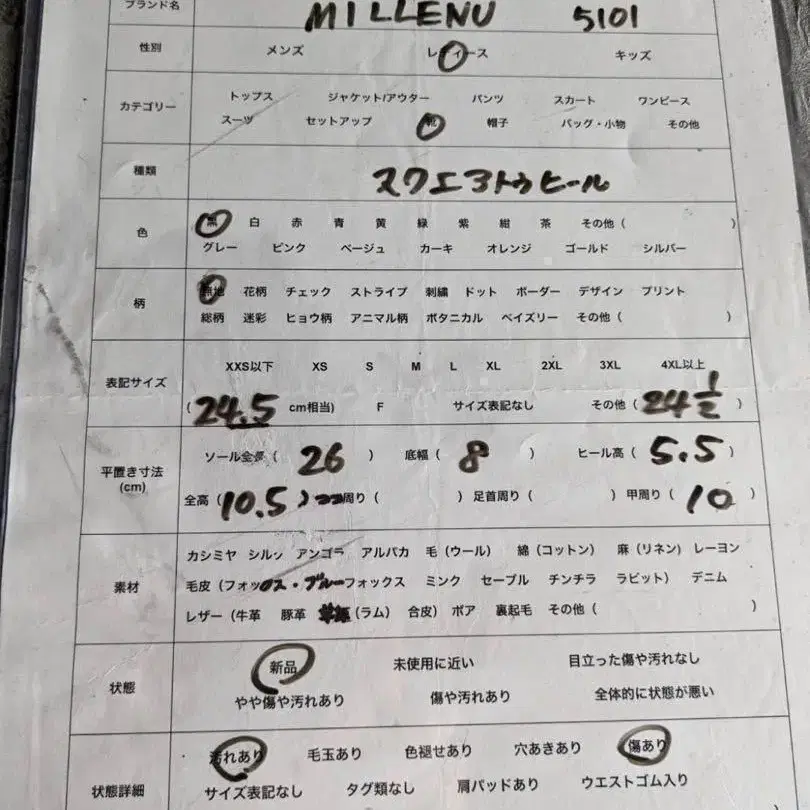 ブランド名 MILLENU 5101
性別 メンズ レディース キッズ
カテゴリー トップス ジャケット/アウター パンツ スカート ワンピース
スーツ セットアップ 靴 帽子 バッグ・小物 その他
種類 スクエアトゥヒール
色 黒 白 赤 青 黄 緑 紫 紺 茶 その他 ( )
グレー ピンク ベージュ カーキ オレンジ ゴールド シルバー
柄 無地 花柄 チェック ストライプ 刺繍 ドット ボーダー デザイン プリント
総柄 迷彩 ヒョウ柄 アニマル柄 ボタニカル ペイズリー その他 ( )
表記サイズ XXS以下 XS S M L XL 2XL 3XL 4XL以上
( 24.5 cm相当) F サイズ表記なし その他 ( 24 1/2 )
平置き寸法 (cm) ソール全長 ( 26 ) 底幅 ( 8 ) ヒール高 ( 5.5 )
全高 ( 10.5 ) 周り ( ) 足首周り ( ) 甲周り ( 10 )
素材 カシミヤ シルク アンゴラ アルパカ 毛 (ウール) 綿 (コットン) 麻 (リネン) レーヨン
毛皮 (フォックス・ブルーフォックス ミンク セーブル チンチラ ラビット) デニム
レザー (牛革 豚革 (ラム) 合皮) ボア 裏起毛 その他 ( )
状態 新品 未使用に近い 目立った傷や汚れなし
やや傷や汚れあり 傷や汚れあり 全体的に状態が悪い
状態詳細 汚れあり 毛玉あり 色褪せあり 穴あきあり 傷あり
サイズ表記なし タグ類なし 肩パッドあり ウエストゴム入り